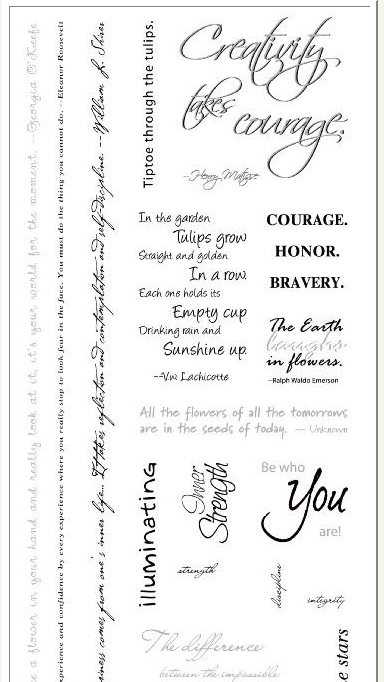 e a flower in your hand and really look at it, it's your world for the moment. --Georgia O'Keefe
xperience and confidence by every experience where you really stop to look fear in the face. You must do the thing you cannot do. --Eleanor Roosevelt
iness comes from one's inner life... It takes reflection and contemplation and self-discipline. --William L. Shirer
Tiptoe through the tulips.
Creativity
takes
courage.
--Henry Matisse
In the garden
Tulips grow
Straight and golden
In a row.
Each one holds its
Empty cup
Drinking rain and
Sunshine up.
--V.w. Lachicotte
COURAGE.
HONOR.
BRAVERY.
The Earth
laaughs
in flowers.
--Ralph Waldo Emerson
All the flowers of all the tomorrows
are in the seeds of today. -- Unknown
illuminating
Inner
Strength
Be who
You
are!
strength
discipline
integrity
The difference
between the impossible
e stars